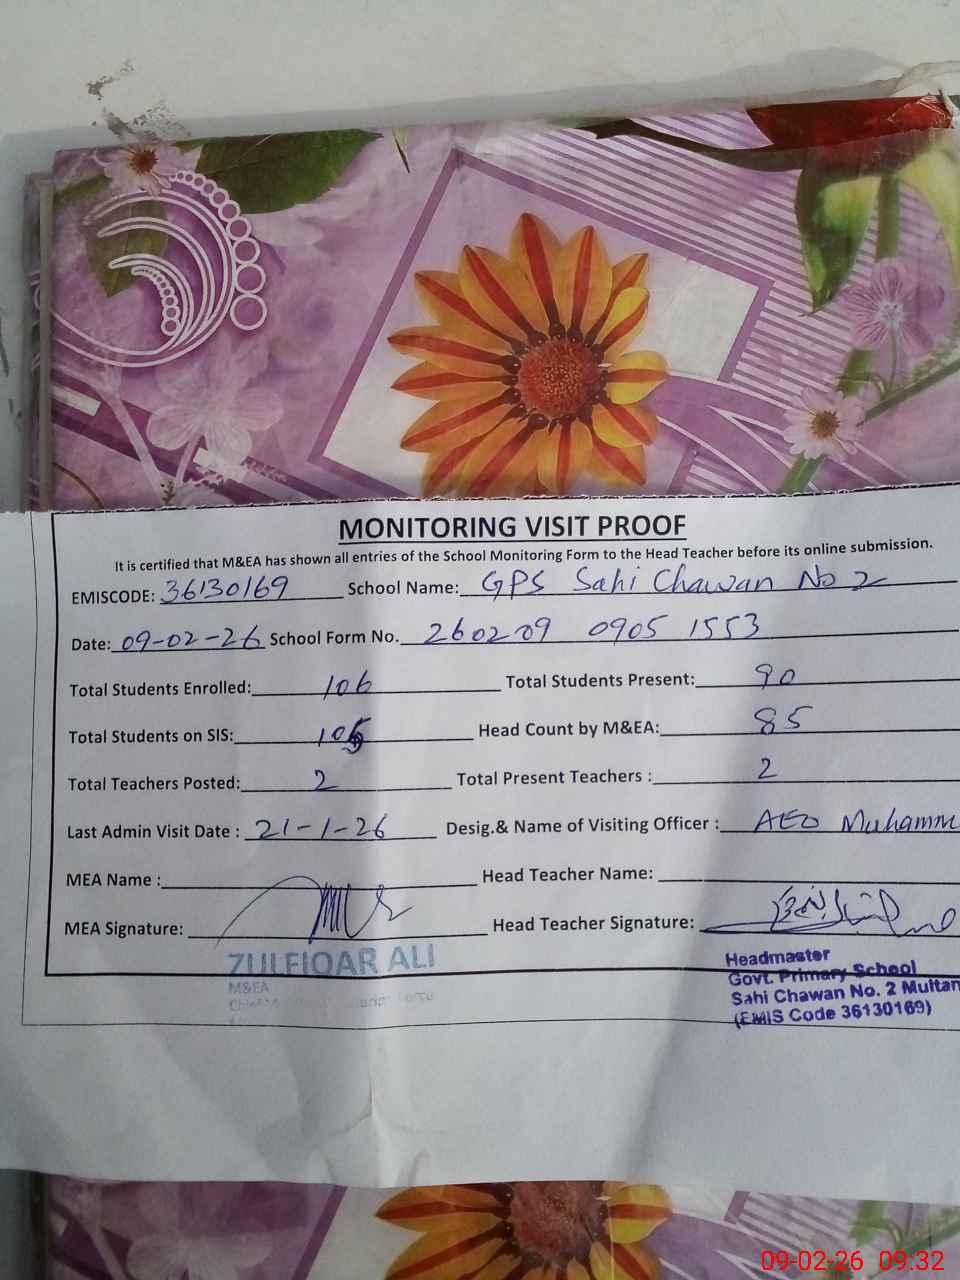 MONITORING VISIT PROOF
It is certified that M&EA has shown all entries of the School Monitoring Form to the Head Teacher before its online submission.
EMISCODE: 36130169 School Name: GPS Sahi Chawan No 2
Date: 09-02-26 School Form No. 260209 0905 1553
Total Students Enrolled: 106 Total Students Present: 90
Total Students on SIS: 105 Head Count by M&EA: 85
Total Teachers Posted: 2 Total Present Teachers : 2
Last Admin Visit Date : 21-1-26 Desig.& Name of Visiting Officer : AEO Muhamm
MEA Name : Head Teacher Name:
MEA Signature: Head Teacher Signature:
ZULFIQAR ALI
M&EA
Headmaster
Govt. Primary School
Sahi Chawan No. 2 Multan
(EMIS Code 36130169)
09-02-26 09:32